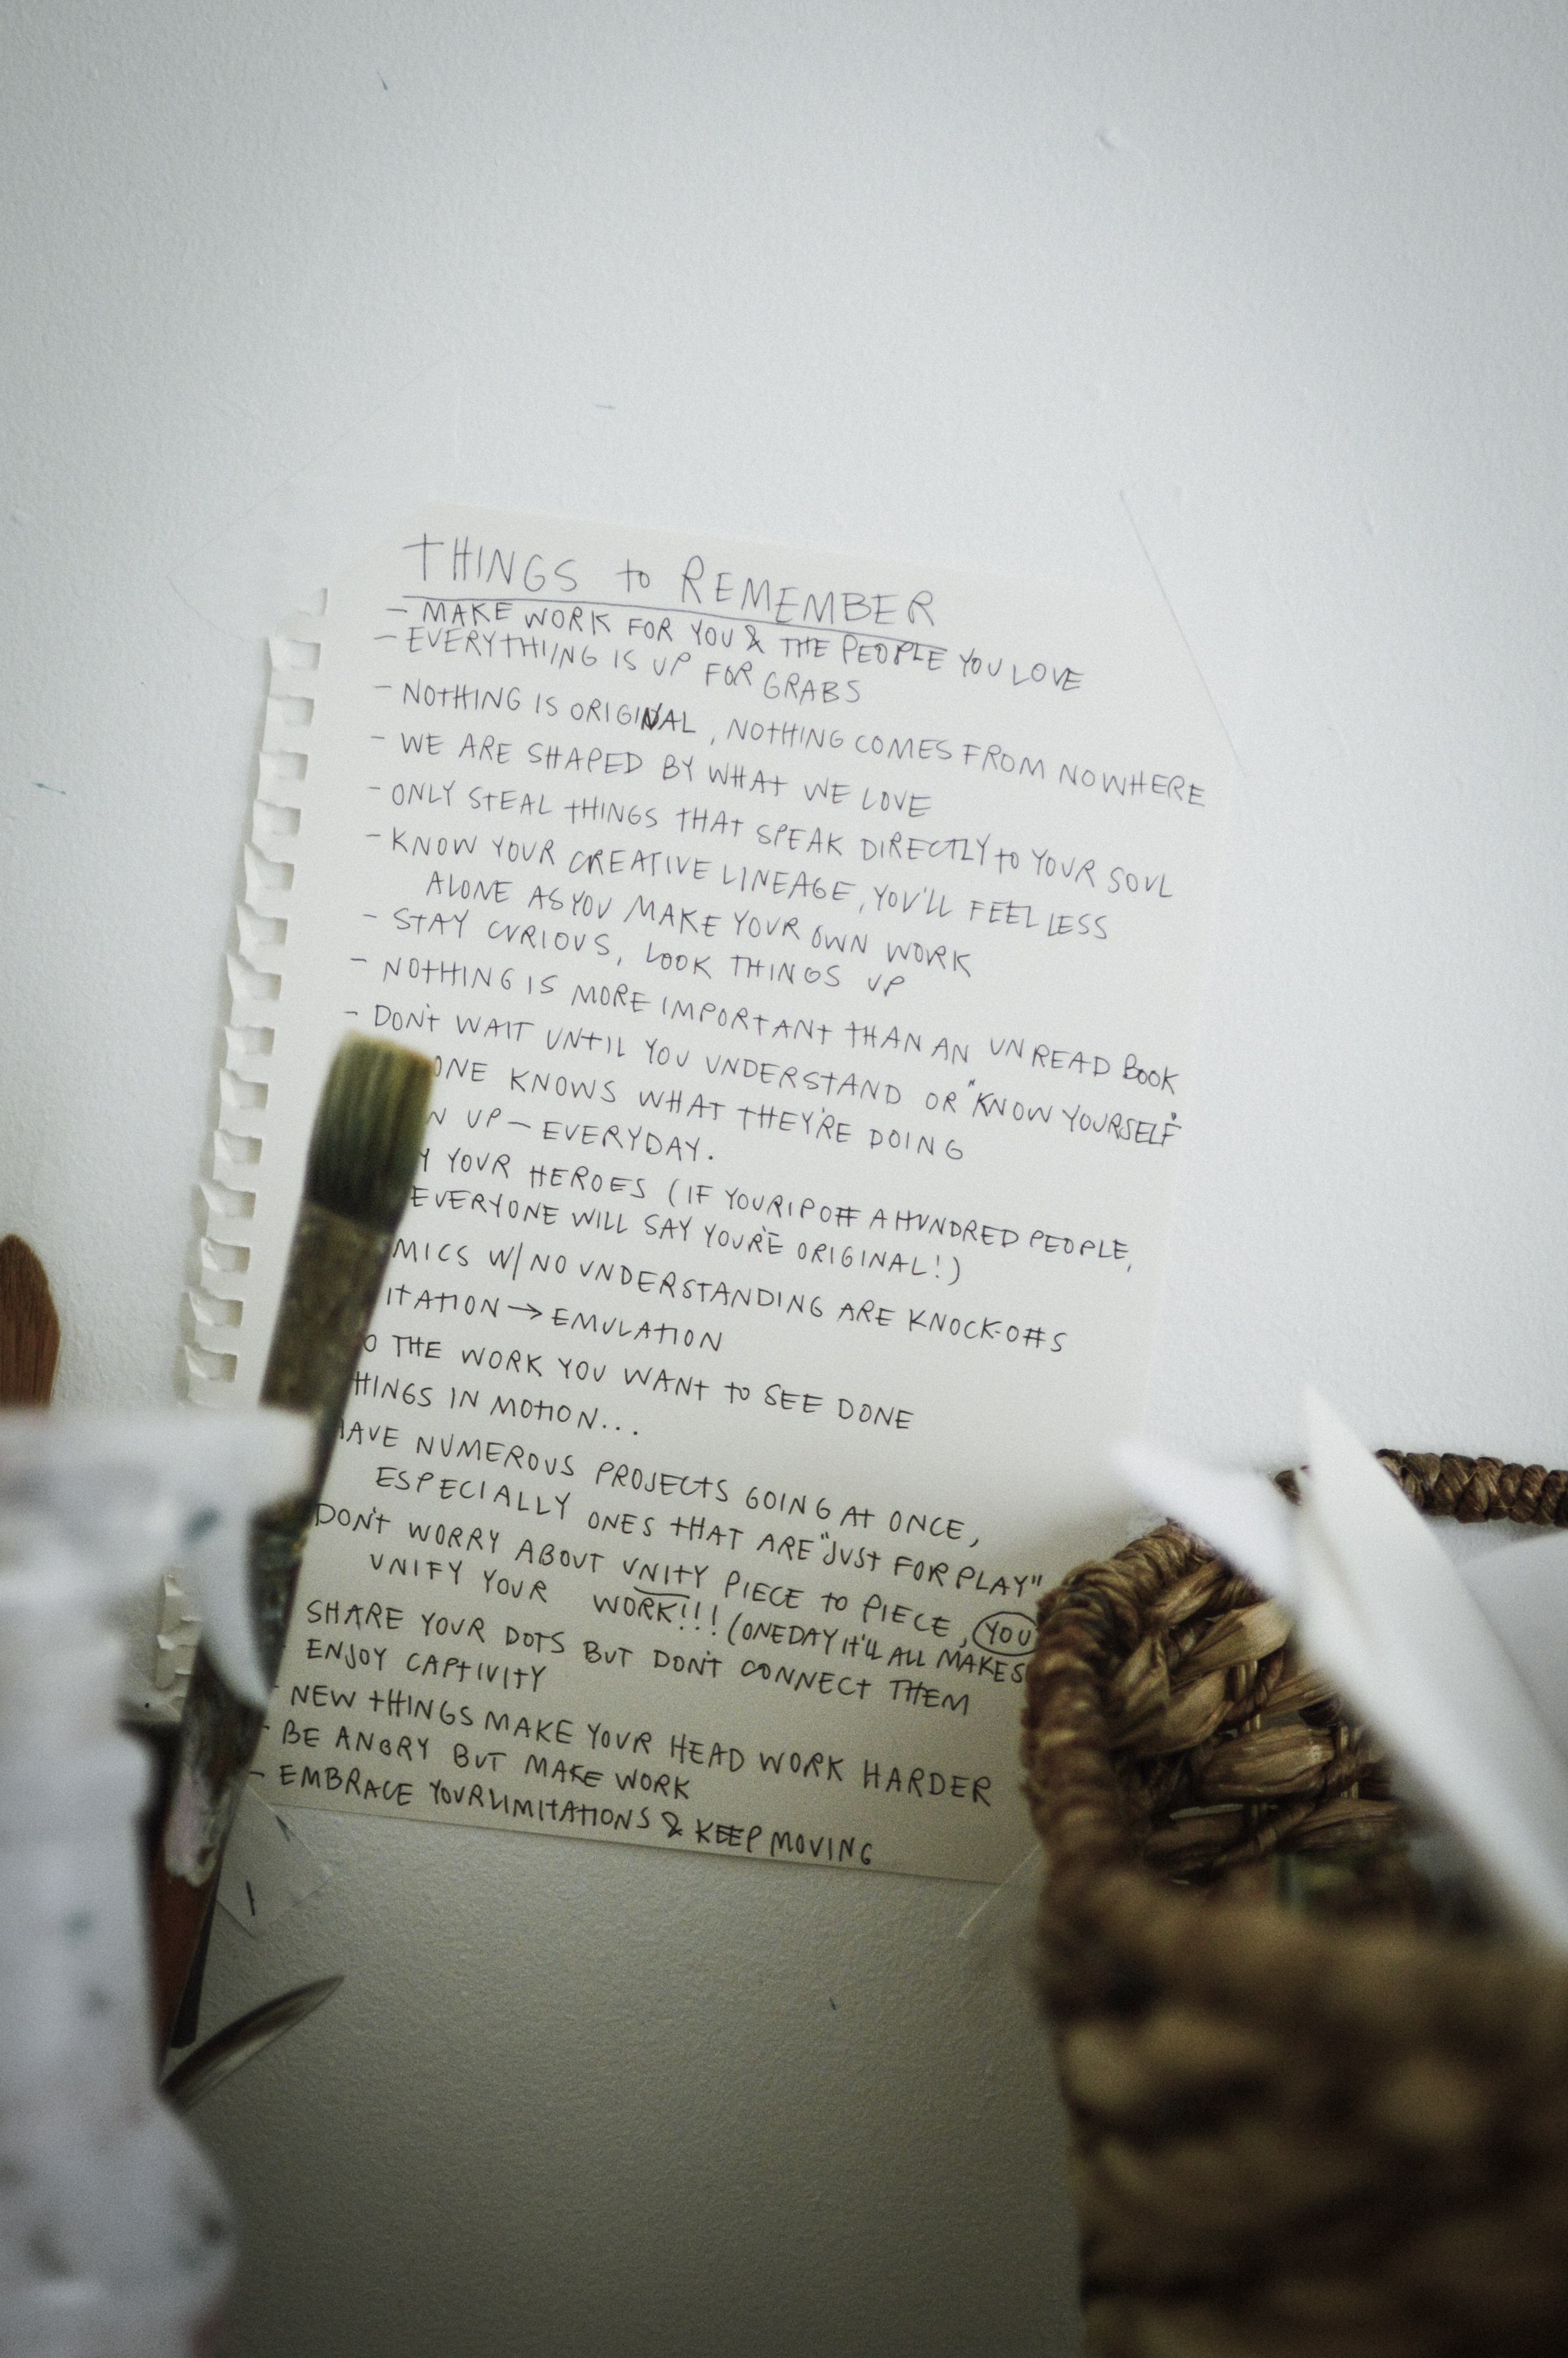 THINGS to REMEMBER
- MAKE WORK FOR YOU & THE PEOPLE YOU LOVE
- EVERYTHIING IS UP FOR GRABS
- NOTHING IS ORIGINAL, NOTHING COMES FROM NOWHERE
- WE ARE SHAPED BY WHAT WE LOVE
- ONLY STEAL THINGS THAT SPEAK DIRECTLY to YOUR SOUL
- KNOW YOUR CREATIVE LINEAGE, YOU'LL FEEL LESS
ALONE AS YOU MAKE YOUR OWN WORK
- STAY CURIOUS, LOOK THINGS UP
- NOTHING IS MORE IMPORTANT THAN AN UNREAD BOOK
- DON'T WAIT UNTIL YOU UNDERSTAND OR "KNOW YOURSELF"
ONE KNOWS WHAT THEY'RE DOING
UP - EVERYDAY.
YOUR HEROES (IF YOU RIP OFF A HUNDRED PEOPLE,
EVERYONE WILL SAY YOU'RE ORIGINAL!)
MICS W/ NO UNDERSTANDING ARE KNOCK-OFFS
ITATION → EMULATION
THE WORK YOU WANT to SEE DONE
HINGS IN MOTION...
HAVE NUMEROUS PROJECTS GOING AT ONCE,
ESPECIALLY ONES THAT ARE "JUST FOR PLAY"
DON'T WORRY ABOUT UNITY PIECE TO PIECE, YOU
UNIFY YOUR WORK!!! (ONE DAY IT'LL ALL MAKES
SHARE YOUR DOTS BUT DON'T CONNECT THEM
ENJOY CAPTIVITY
- NEW THINGS MAKE YOUR HEAD WORK HARDER
- BE ANGRY BUT MAKE WORK
- EMBRACE YOUR LIMITATIONS & KEEP MOVING